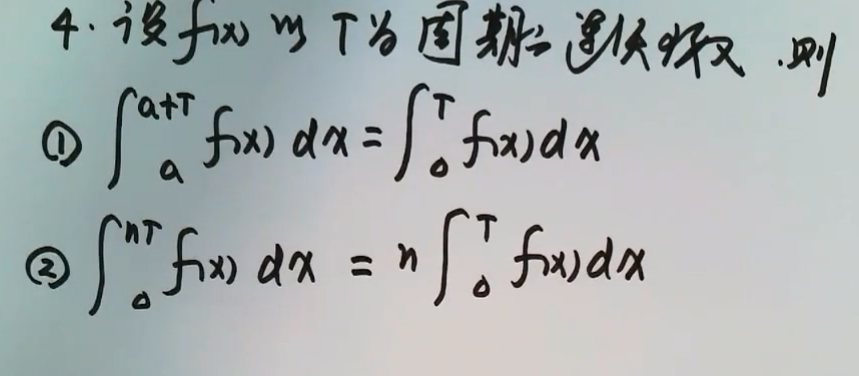 4. 设f(x)以T为周期的连续函数.则
① ∫_a^{a+T} f(x) dx = ∫_0^T f(x) dx
② ∫_0^{nT} f(x) dx = n ∫_0^T f(x) dx